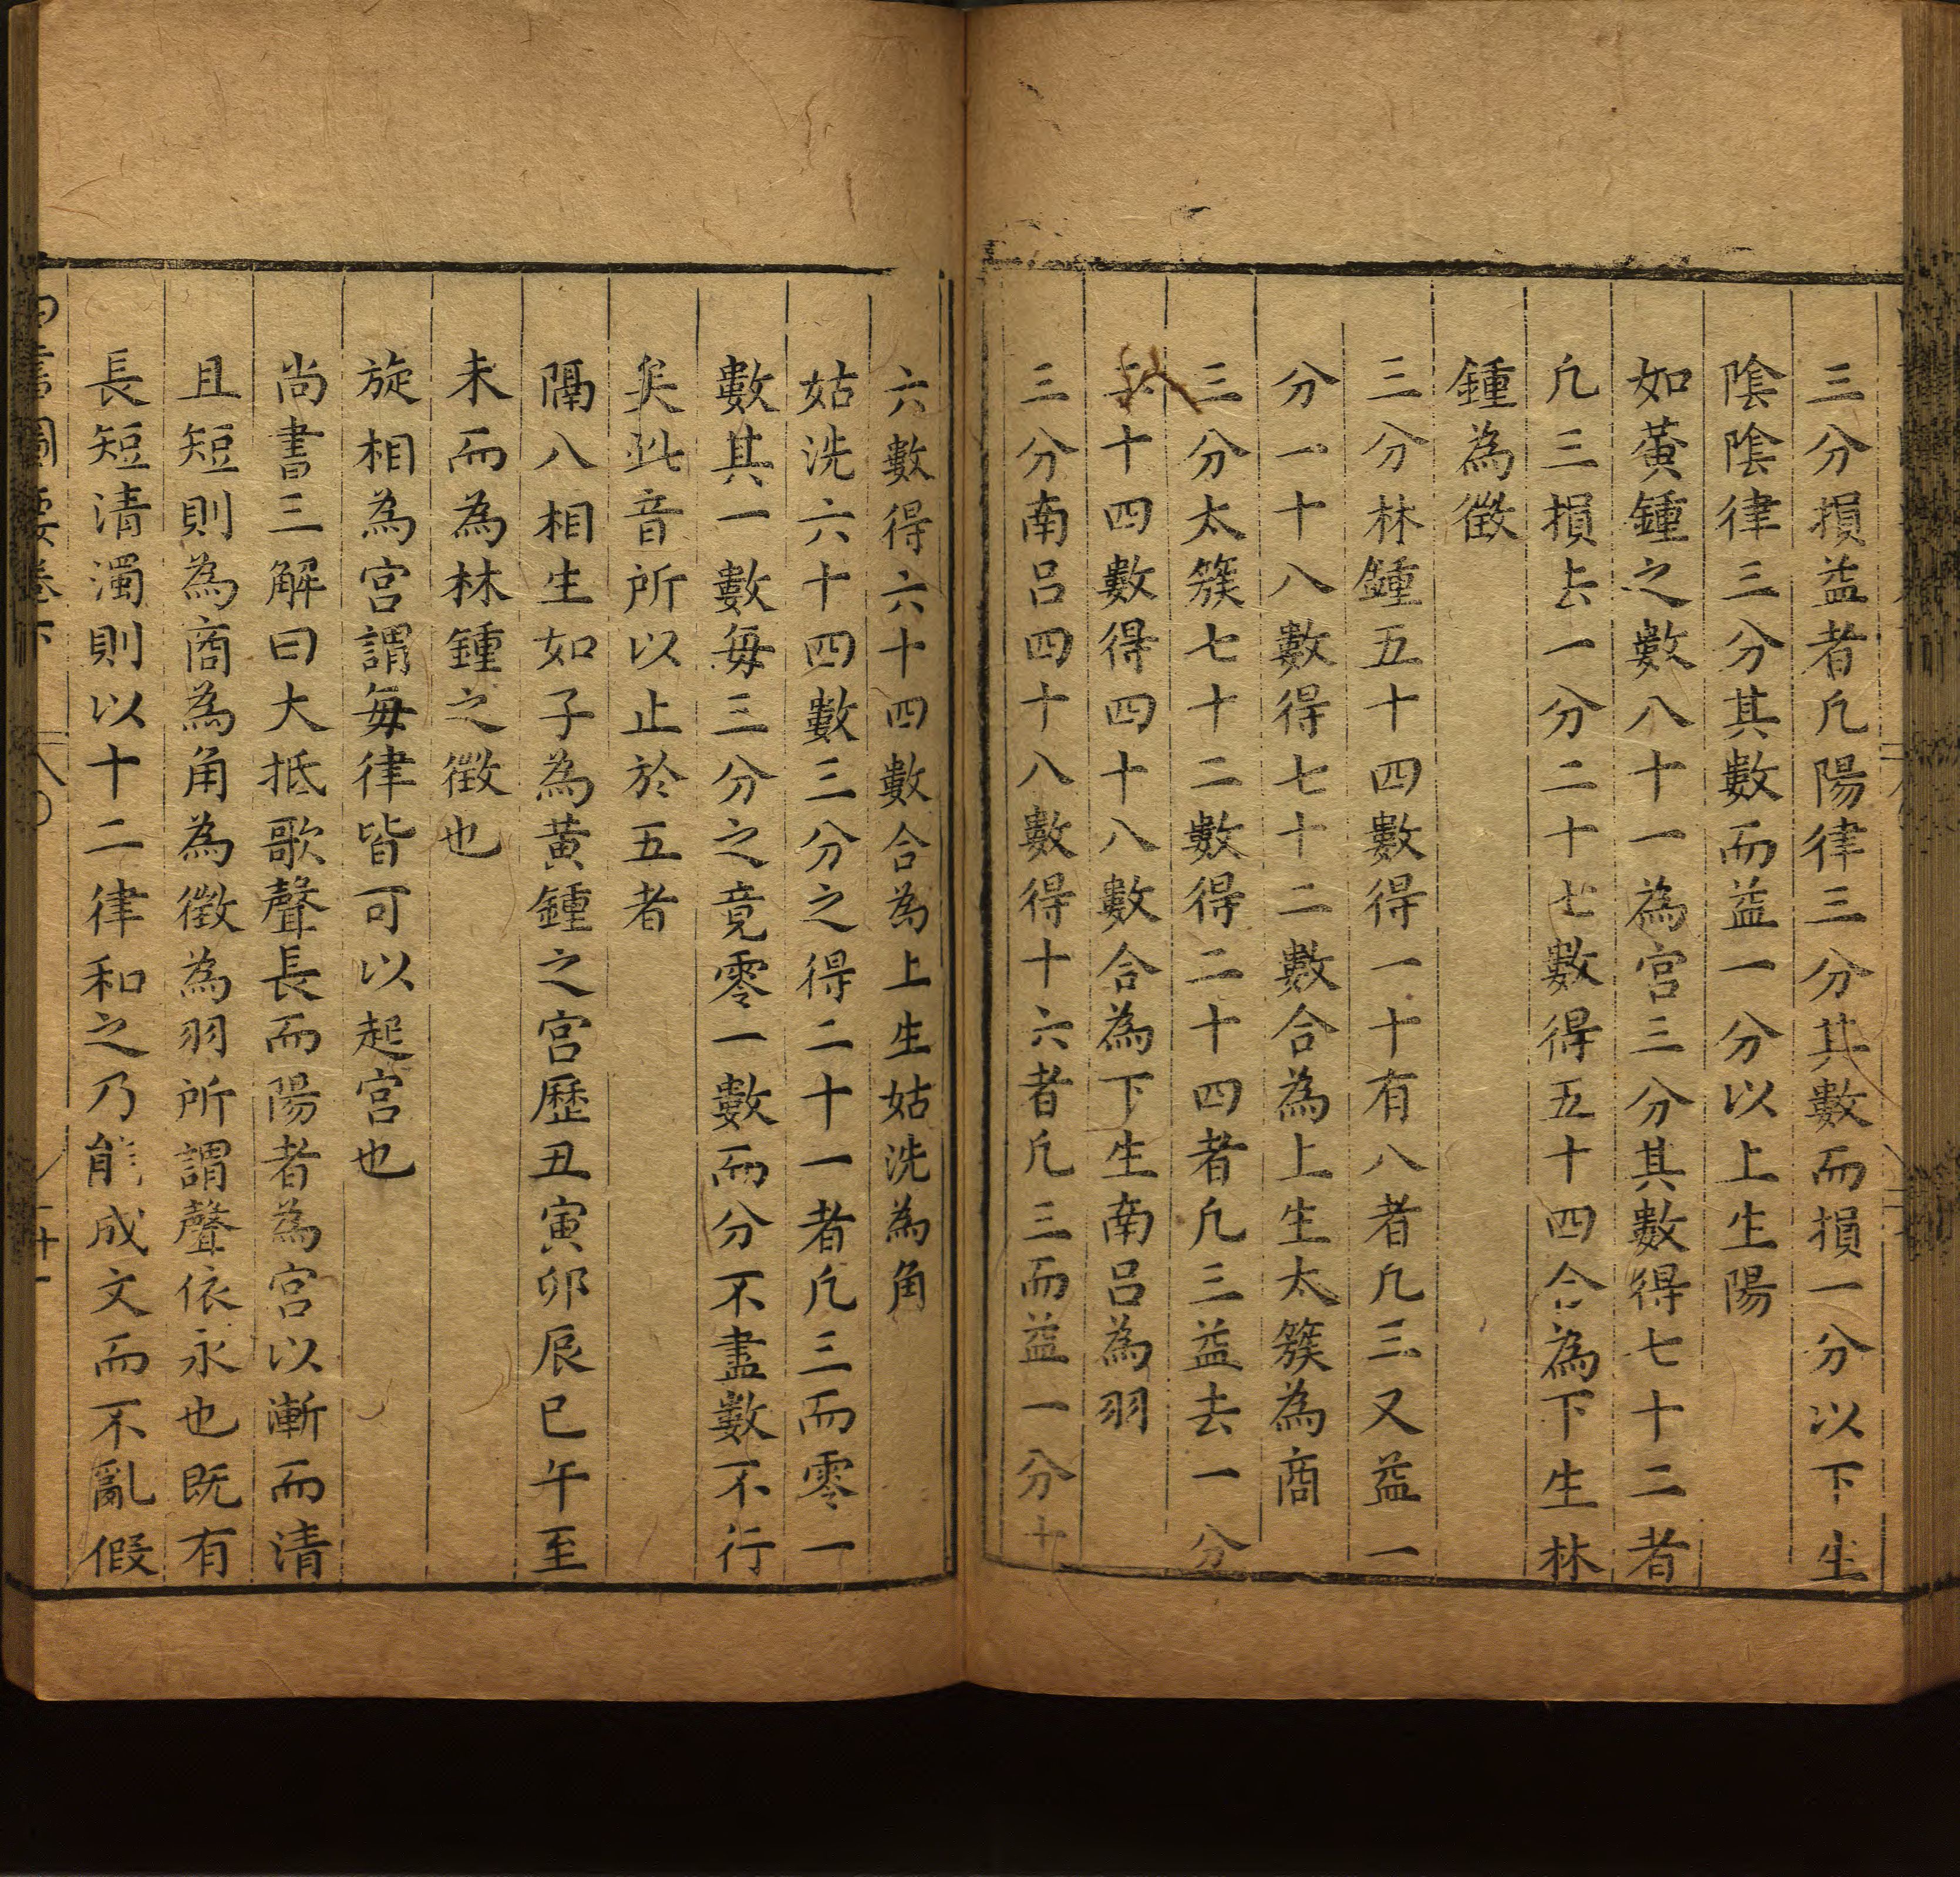 三分損益者凢陽律三分其數而損一分以下生
陰陰律三分其數而益一分以上生陽
如黃鍾之數八十一為宮三分其數得七十二者
凢三損去一分二十七數得五十四合為下生林
鍾為徵
三分林鍾五十四數得一十有八者凢三又益一
分一十八數得七十二數合為上生太簇為商
三分太簇七十二數得二十四者凢三益去一分
十四數得四十八數合為下生南呂為羽
三分南呂四十八數得十六者凢三而益一分十
六數得六十四數合為上生姑洗為角
姑洗六十四數三分之得二十一者凢三而零一
數其一數每三分之竟零一數而分不盡數不行
矣此音所以止於五者
隔八相生如子為黃鍾之宮歷丑寅卯辰巳午至
未而為林鍾之徵也
旋相為宮謂每律皆可以起宮也
尚書三解曰大抵歌聲長而陽者為宮以漸而清
且短則為商為角為徵為羽所謂聲依永也既有
長短清濁則以十二律和之乃能成文而不亂假
書圖要卷下